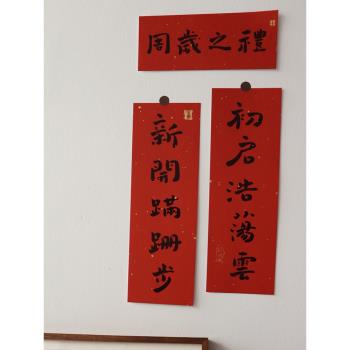 周歲之禮
初启浩蕩雲
新開蹣跚步